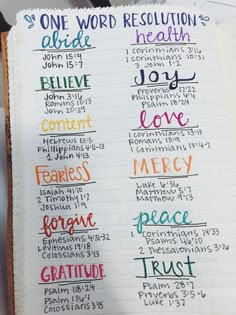 ONE WORD RESOLUTION
abide
John 15:4
John 15:7
BELIEVE
John 3:16
Romans 15:13
John 20:29
Content
Hebrews 13:5
Philippians 4:11-13
1 John 4:13
Fearless
Isaiah 41:10
2 Timothy 1:7
Joshua 1:9
forgive
Ephesians 4:31-32
Leviticus 19:18
Colossians 3:13
GRATITUDE
Psalm 118:24
Psalm 136:1
Colossians 3:15
health
1 Corinthians 3:16
1 Corinthians 10:31
3 John 1:2
Joy
Proverbs 17:22
Philippians 4:4
Psalm 118:24
love
1 Corinthians 13:13
Romans 13:9
1 Corinthians 13:4-7
MERCY
Luke 6:36
Matthew 5:7
Matthew 9:13
peace
1 Corinthians 14:33
Psalms 46:10
2 Thessalonians 3:16
TRUST
Psalm 28:7
Proverbs 3:5-6
Luke 1:37